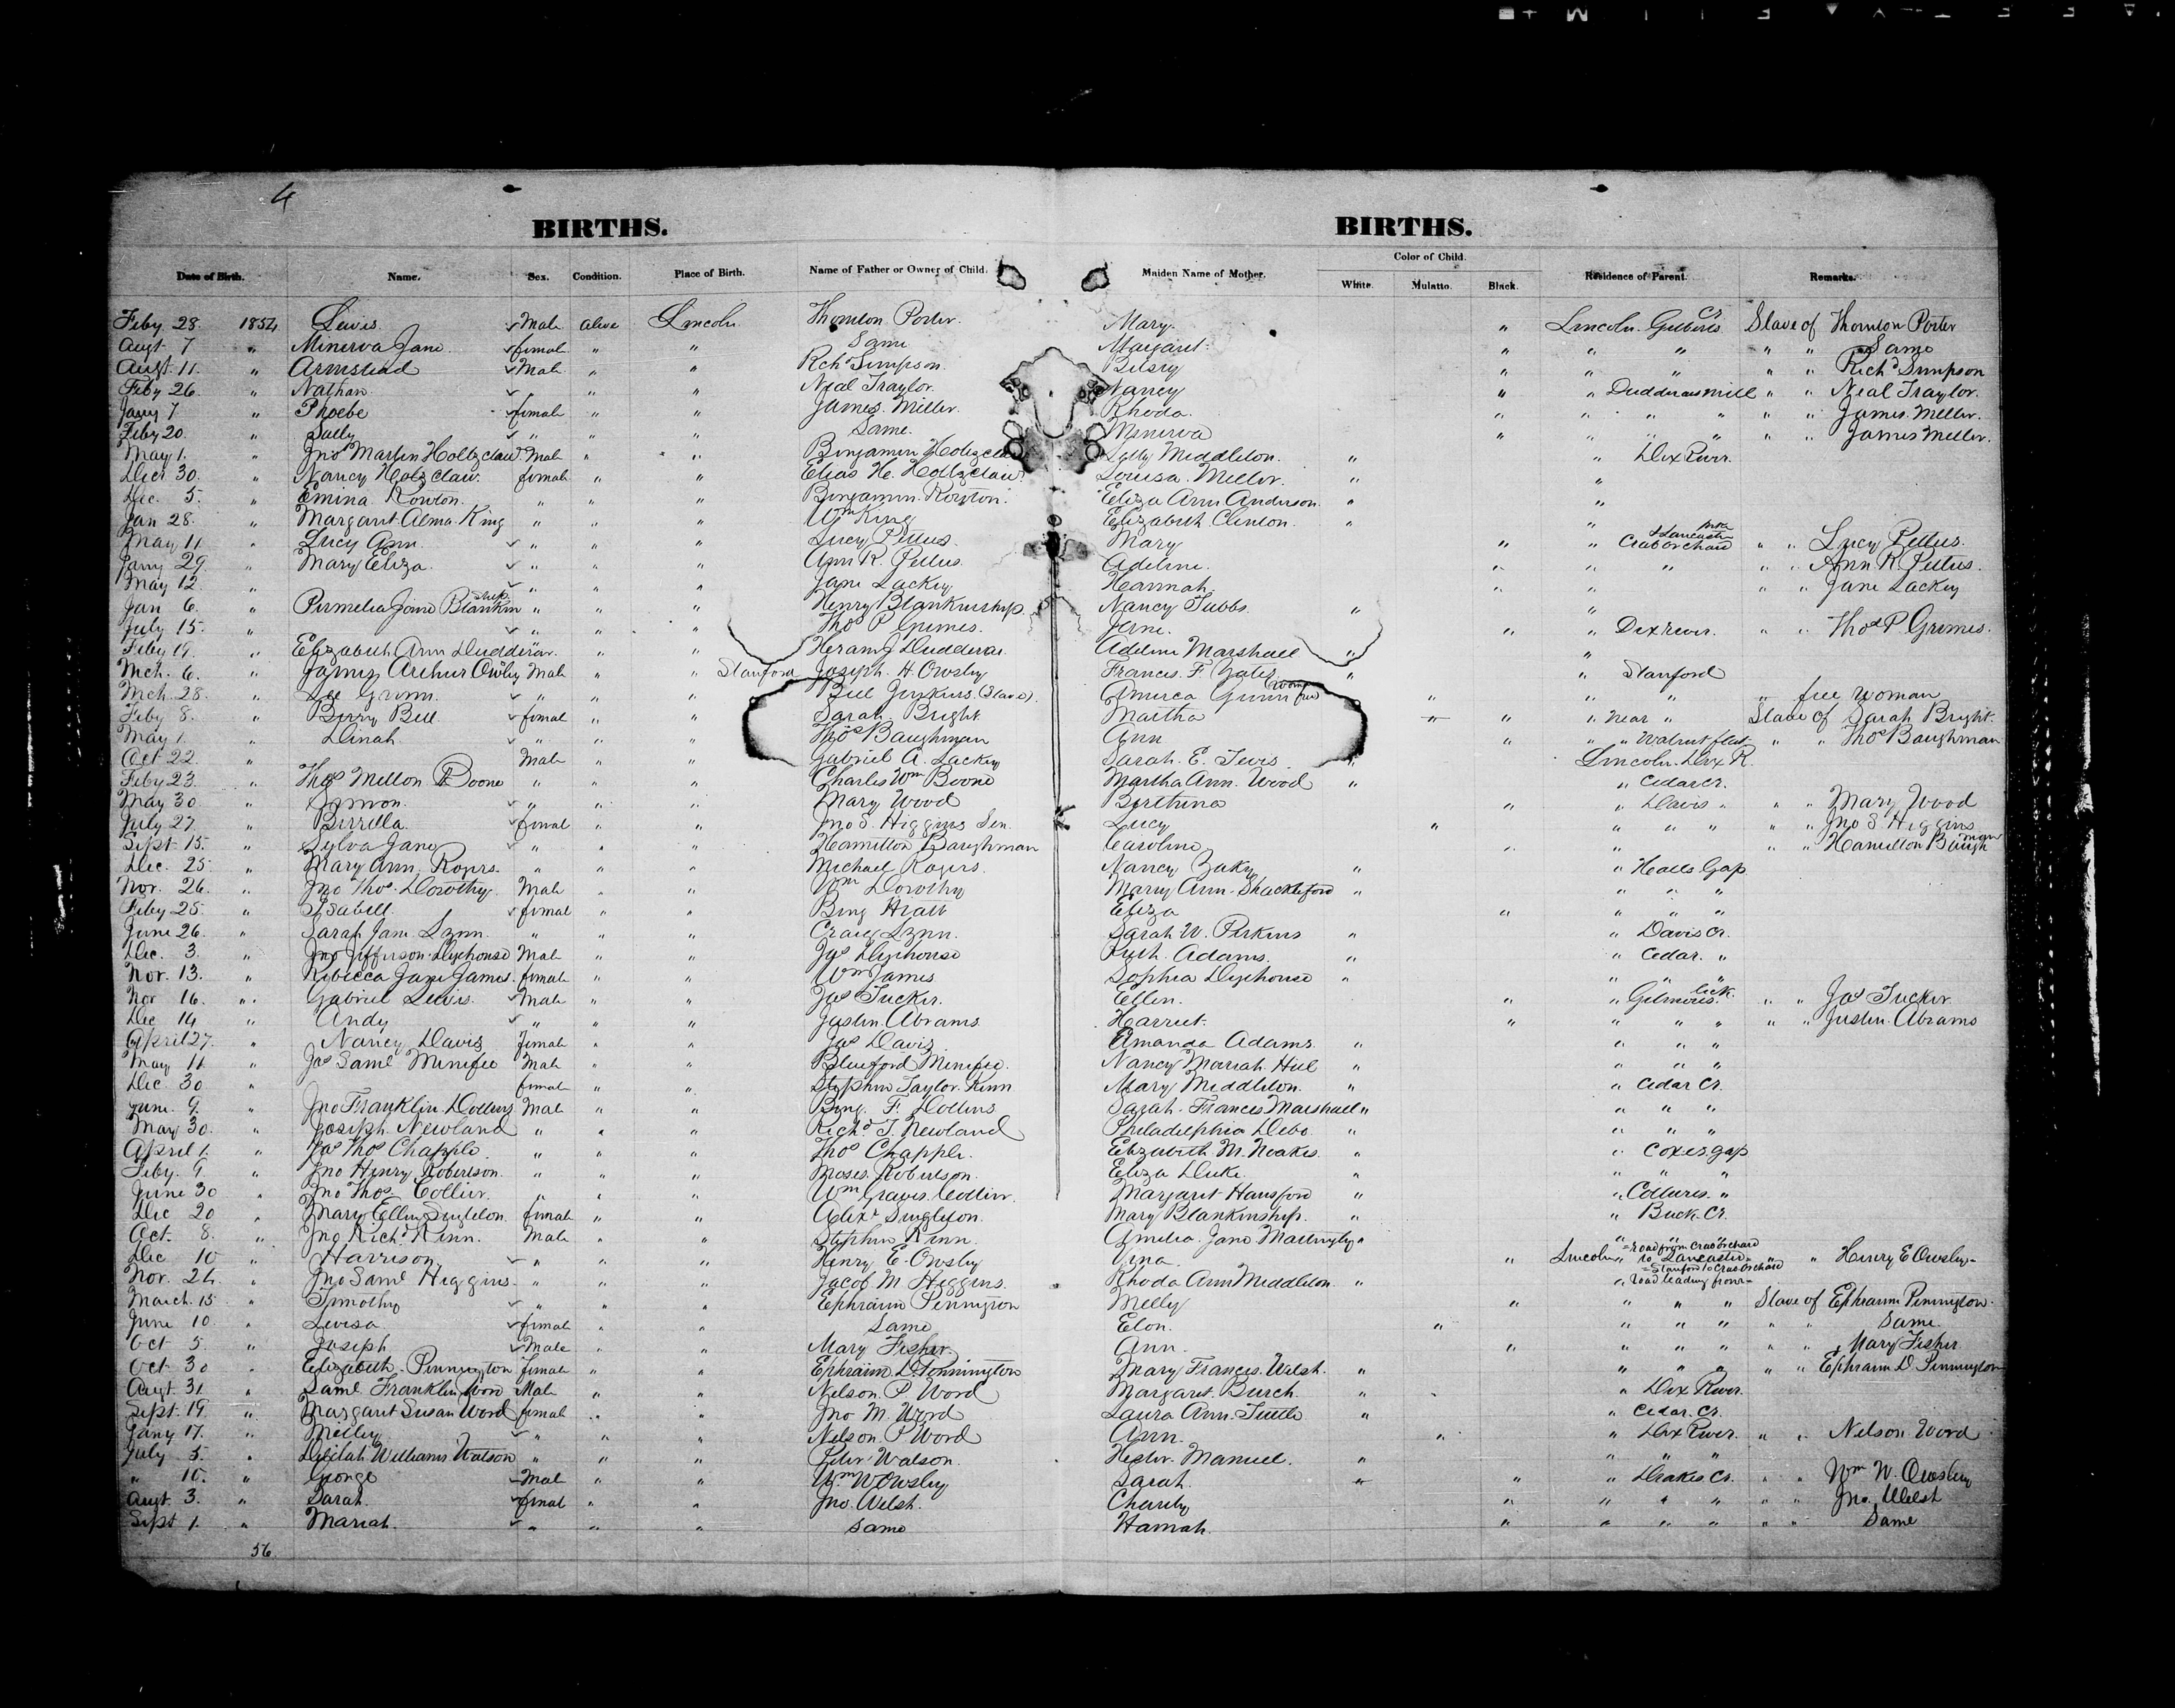 4
BIRTHS. BIRTHS.
Date of Birth. Name. Sex. Condition. Place of Birth. Name of Father or Owner of Child. Maiden Name of Mother. Color of Child. White. Mulatto. Black. Residence of Parent. Remarks.
Feby 28. 1854 Lewis. Male alive Lincoln Thornton Porter. Mary. " Lincoln Gilberts Cr Slave of Thornton Porter
Augt 7 " Minerva Jane. female " " Same Margaret. " " " " " Same
Augt. 11. " Armstead Male " " Richd Simpson. Betsey " " " " " Richd Simpson
Feby 26. " Nathan " " " Neal Traylor. Nancy " " Dudderars Mill " " Neal Traylor.
Jany 7. " Phoebe female " " James Miller. Rhoda. " " " " " " James Miller.
Feby 20. " Sally " " " Same. Minerva " " " " " " James Miller.
May 1. " Jno Martin Holtzclaw. Male " " Benjamin Holtzclaw Middleton. " " Dix River.
Decr 30. " Nancy Holtzclaw. female " " Elias H. Holtzclaw. Louisa Miller. " "
Dec. 5. " Emina Rowton. " " Benjamin Rowton. Eliza Ann Anderson. " "
Jan 28. " Margaret Alma King " " " Wm King Elizabeth Clinton. " "
May 11. " Lucy Ann. " " " Lucy Pettus. Mary " " Crab Orchard & Lancaster " " Lucy Pettus.
Jany 29 " Mary Eliza. " " " Ann R. Pettus Adeline. " " " " " Ann R Pettus.
May 12. " " " " Jane Lackey Hannah " " " " " Jane Lackey
Jan 6. " Permelia Jane Blankinship " " " Henry Blankinship. Nancy Tubbs. " "
July 15. " " " " Thos P Grimes. " " Dix River. " " Thos P. Grimes.
Feby 19. " Elizabeth Ann Dudderar. Hiram J Dudderar Adeline Marshall " "
Mch. 6. " James Arthur Owsley Male " " Stanford Joseph H. Owsley Frances F. Yates " " Stanford
Mch. 28. " " " " Bill Junkins (Slave) America (free woman) " " " " free woman
Feby 8. " Berry Bell. female " " Sarah Bright Martha " " " near " Slave of Sarah Bright.
May 1. " Dinah " " " Thos Baughman Ann " " " Walnut flat " " Thos Baughman
Oct 22. " Male " " Gabriel A. Lackey Sarah. E. " Lincoln Dix R.
Feby 23. " Thos Millon Boone " " " Charles Wm Boone Martha Ann. Wood " " Cedar Cr.
May 30 " " " " Mary Wood " " Davis " " " Mary Wood
July 27. " Berrilla. female " " Jno S. Higgins Sen. Lucy " " " " " " Jno S Higgins
Sept 15. " Sylva Jane " " " Hamilton Baughman Caroline " " " " Hamilton Baughman
Dec. 25. " Mary Ann Rogers. " " " Michael Rogers. Nancy " " Halls Gap
Nov. 26. " Jno Thos Dorothy. Male " " Wm Dorothy Mary Ann Shackleford " " " "
Feby 25. " Isabell. female " " Benj Hiatt Eliza " " " "
June 26. " Sarah Jane Lynn. " " " Craig Lynn. Sarah W. Perkins " " Davis Cr.
Dec. 3. " Jno Jefferson Dyehouse Male " " Jas Dyehouse Ruth Adams. " " Cedar. "
Nov. 13. " Rebecca Jane James. female " " Wm James Sophia Dyehouse " " " "
Nov 16. " Gabriel Lewis. Male " " Jas Tucker. Ellen. " " Gilmores lick. " " Jas Tucker
Dec 14 " Andy " " " Justin Abrams. Harriet. " " " " " " Justin Abrams
April 27. " Nancy Davis female " " Jas Davis Amanda Adams. " " " "
May 11 " Jas Saml Menifee Male " " Blueford Menifee. Nancy Mariah Hill " " " "
Dec. 30 " female " " Stephen Taylor Mary Middleton. " " Cedar Cr.
June. 9. " Jno Franklin Dollins Male " " Benj. F. Dollins Sarah Frances Marshall " " " "
May 30. " Joseph Newland " " " Richd T. Newland Philadelphia Debo " " " "
April 1. " Jas Thos Chapple " " " Thos Chapple. Elizabeth M. Noakes. " " Coxes gap
Feby. 9 " Jno Henry Robertson. " " " Moses Robertson. Eliza Duke. " " " "
June 30 " Jno Thos Collier. " " " Wm Graves. Collier. Margaret Hansford " " Colliers. "
Dec 20 " Mary Ellen Singleton. female " " Alexr Singleton. Mary Blankinship. " " Buck Cr.
Oct. 8. " Jno Richd Male " " Stephen Amelia Jane Mattingly " " " "
Dec 10 " Harrison. " " " Henry E. Owsley " Lincoln " road from Crab Orchard to Lancaster " " Henry E Owsley
Nov. 24. " Jno Saml Higgins. " " " Jacob M Higgins. Rhoda Ann Middleton. " " road leading from Stanford to Crab Orchard
March. 15 " Timothy " " " Ephraim Pennington Milly " " " " Slave of Ephraim Pennington.
June 10. " Levisa. female " " Same " " " " " " Same.
Oct 5. " Joseph Male " " Mary Fisher. Ann. " " " " " " Mary Fisher
Oct 30 " Elizabeth Pennington female " " Ephraim D. Pennington Mary Frances Welsh. " " " " " " Ephraim D. Pennington
Augt. 31. " Saml Franklin Word Male " " Nelson. P. Word Margaret Burch. " " Dix River.
Sept. 19. " Margaret Susan Word female " " Jno M. Word Laura Ann. Tuttle " " Cedar. Cr.
Jany 17. " Milley. " " " Nelson. P. Word Ann. " " Dix River. " " Nelson Word
July 5. " Delilah Williams Watson " " " Peter Watson. Hester Manuel. " " " "
" 10. " George Male " " Wm W Owsley Sarah. " " " Drakes Cr. " " Wm W. Owsley
Augt. 3. " Sarah. female " " Jno. Welsh. Charity " " " " " " Jno. Welsh
Sept 1. " Mariah. " " " Same Hannah. " " " " " " Same
56.